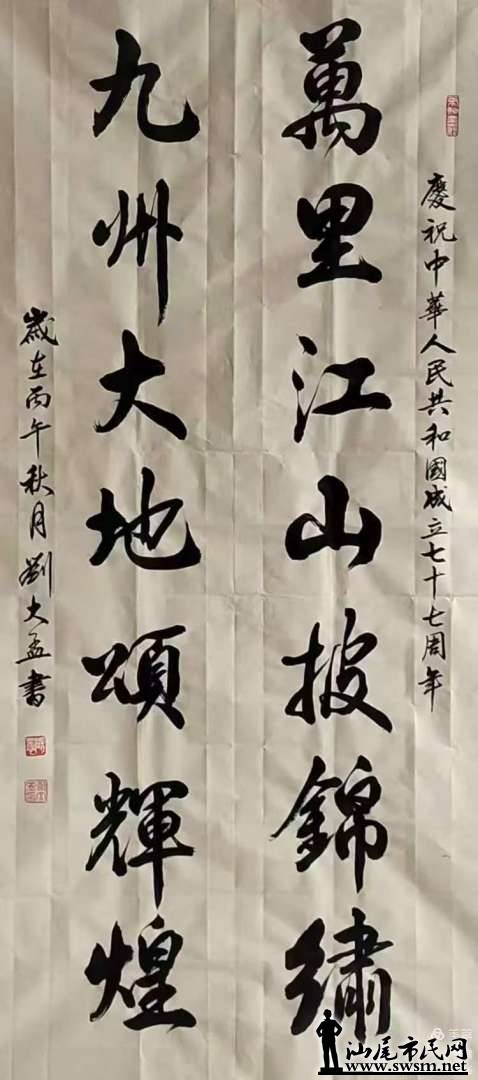 慶祝中華人民共和國成立七十七周年
萬里江山披錦繡
九州大地頌輝煌
歲在丙午秋月劉大孟書
汕尾市民网
www.swsm.net